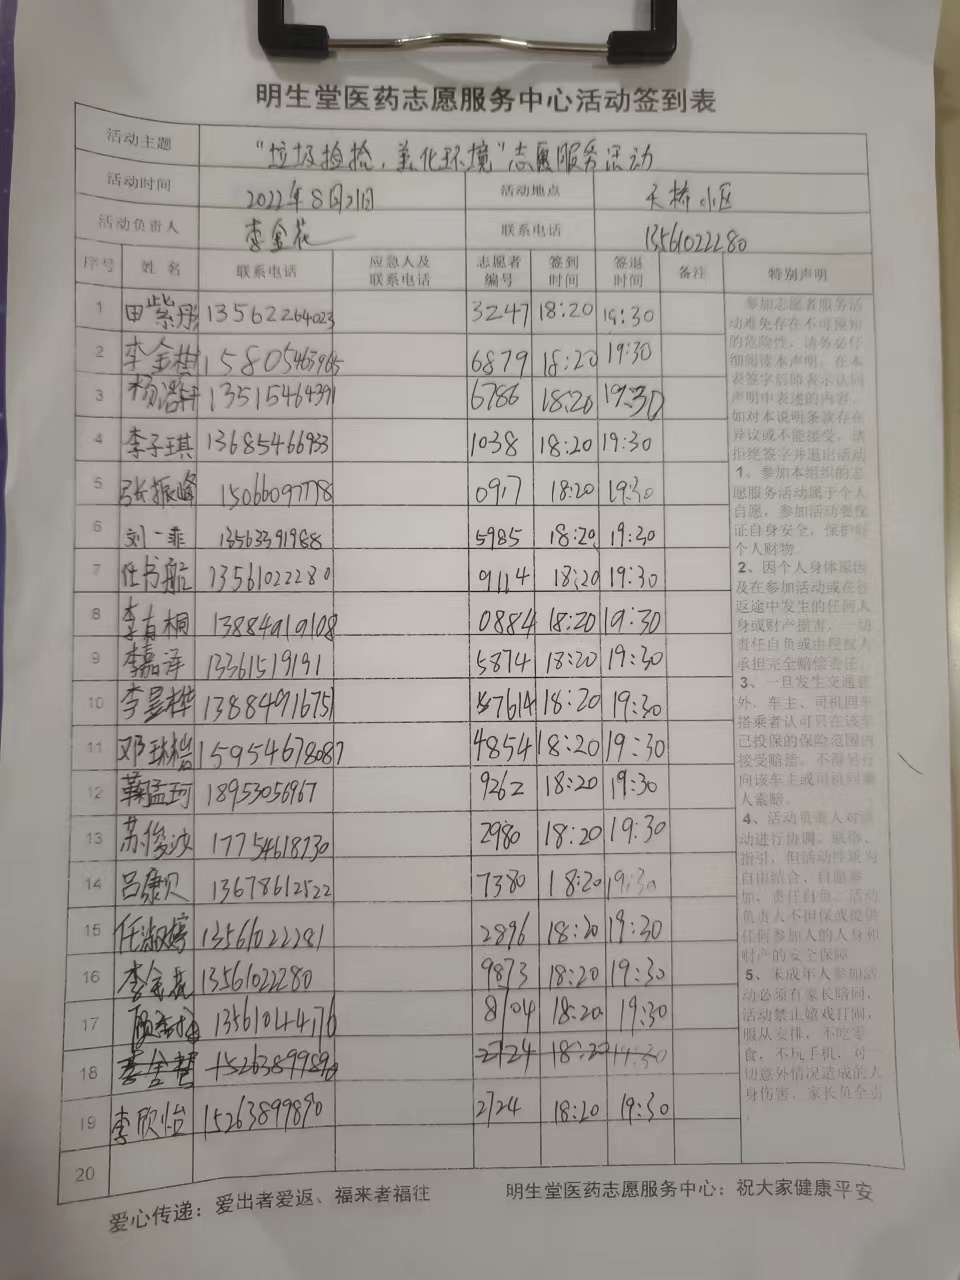 明生堂医药志愿服务中心活动签到表
活动主题 "垃圾捡捡,美化环境"志愿服务活动
活动时间 2022年8月21日 活动地点 天桥小区
活动负责人 李金花 联系电话 13561022280
序号 姓名 联系电话 应急人及联系电话 志愿者编号 签到时间 签退时间 备注 特别声明
1 田紫彤 13562264023 3247 18:20 19:30
2 李金樹 15805463965 6879 18:20 19:30
3 杨浩轩 13515464391 6786 18:20 19:30
4 李子琪 13685466933 1038 18:20 19:30
5 张振峰 15066097778 0917 18:20 19:30
6 刘一菲 13563391988 5985 18:20 19:30
7 任书航 13561022280 9114 18:20 19:30
8 李有桐 13884919108 0884 18:20 19:30
9 李嘉泽 13361519191 5874 18:20 19:30
10 李昱桦 13884916751 7614 18:20 19:30
11 邓琳 15954678087 4854 18:20 19:30
12 鞠孟珂 18953056967 9262 18:20 19:30
13 苏俊波 17754618730 2980 18:20 19:30
14 吕康贝 13678612522 7380 18:20 19:30
15 任淑婷 13561022281 2896 18:20 19:30
16 李金花 13561022280 9873 18:20 19:30
17 13561044176 8104 18:20 19:30
18 15263899890 2724 18:20 19:30
19 李欣怡 15263899890 2724 18:20 19:30
20
参加志愿者服务活
动难免存在不可预知
的危险性,请务必仔
细阅读本声明,在本
表签字后即表示认同
声明中表述的内容。
如对本说明条款存在
异议或不能接受,请
拒绝签字并退出活动
1、参加本组织的志
愿服务活动属于个人
自愿,参加活动要保
证自身安全,保护好
个人财物。
2、因个人身体原因
及在参加活动或在往
返途中发生的任何人
身或财产损害,一切
责任自负或由侵权人
承担完全赔偿责任。
3、一旦发生交通意
外,车主、司机同车
搭乘者认可只在该车
已投保的保险范围内
接受赔偿,不得另行
向该车主或司机同乘
人索赔。
4、活动负责人对活
动进行协调、联络、
指引,但活动性质为
自由结合、自愿参
加、责任自负。活动
负责人不担保或提供
任何参加人的人身和
财产的安全保障
5、未成年人参加活
动必须有家长陪同,
活动禁止嬉戏打闹,
服从安排,不吃零
食,不玩手机,对一
切意外情况造成的人
身伤害,家长负全责
爱心传递:爱出者爱返、福来者福往 明生堂医药志愿服务中心:祝大家健康平安